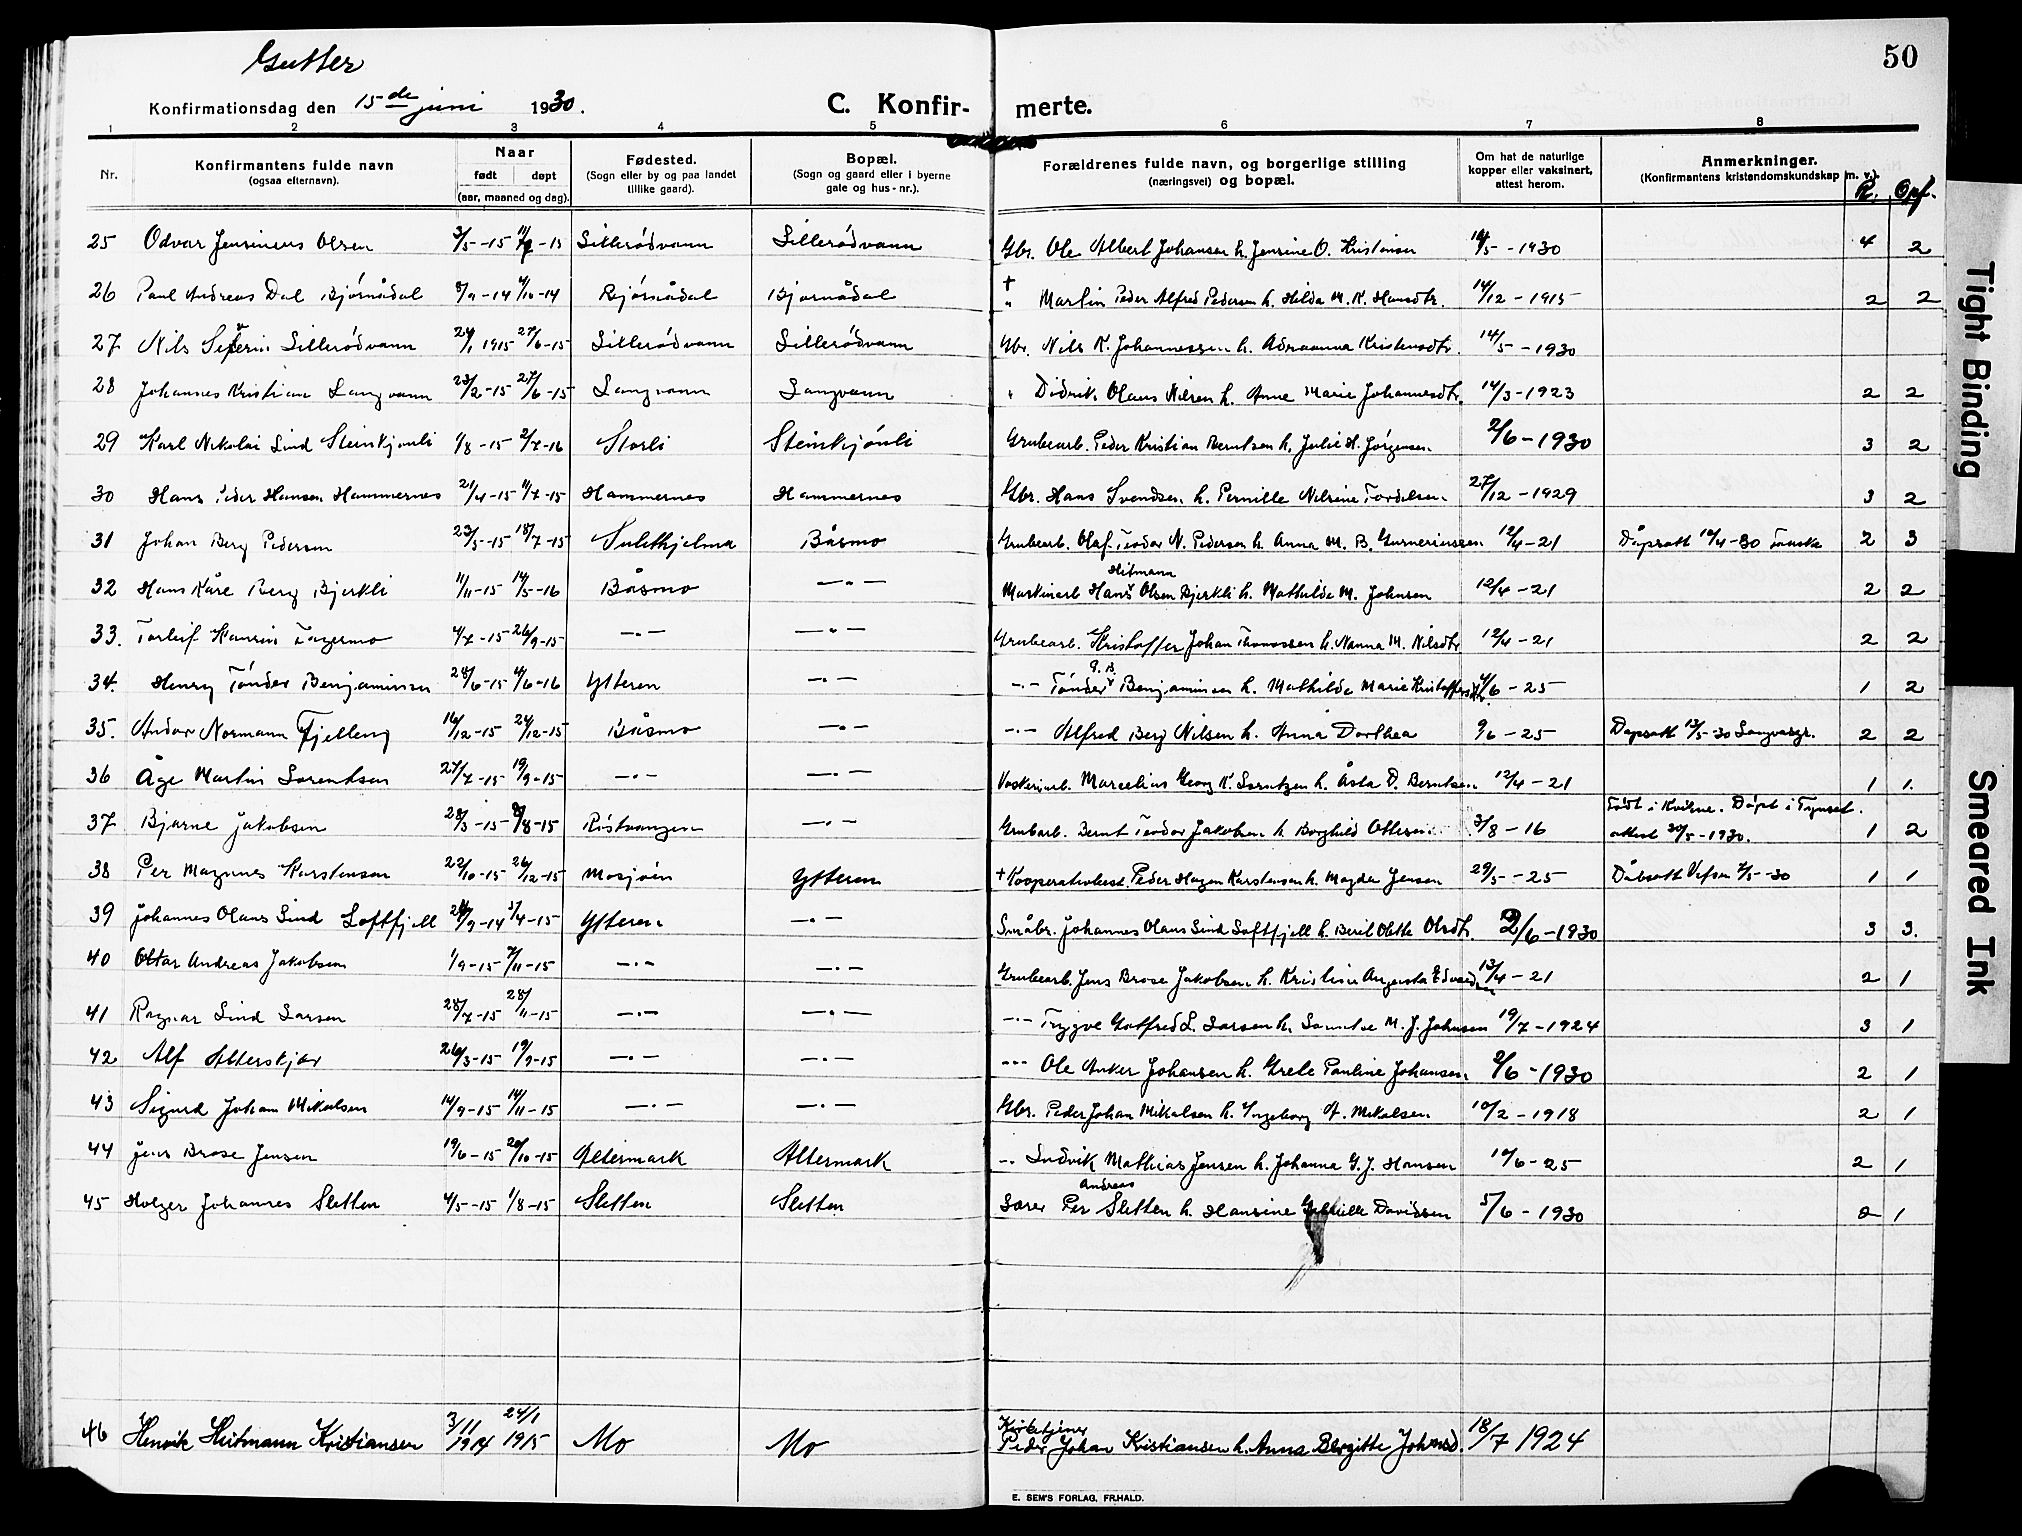 Gutter
50
Konfirmationsdag den 15de juni 1930.
C. Konfir- merte.
1 2 3 4 5 6 7 8
Nr.
Konfirmantens fulde navn
(ogsaa efternavn).
Naar
født døpt
(aar, maaned og dag).
Fødested.
(Sogn eller by og paa landet
tillike gaard).
Bopæl.
(Sogn og gaard eller i byerne
gate og hus-nr.).
Forældrenes fulde navn, og borgerlige stilling
(næringsvei) og bopæl.
Om hat de naturlige
kopper eller vaksinert,
attest herom.
Anmerkninger.
(Konfirmantens kristendomskundskap m. v.).
K. Opf.
25 Odvar Jensinius Olsen 3/5-15 -15 Sillerødvann Sillerødvann Gbr. Ole Albert Johansen h. Jensine O. Kristensen 14/5-1930 4 2
26 Paul Andreas Dal Bjørnådal 8/9-14 4/10-14 Bjørnådal Bjørnådal † " Martin Peder Alfred Pedersen h. Hilda M. K. Hansdtr. 14/12-1915 2 2
27 Nils Severin Sillerødvann 24/1 1915 27/6-15 Sillerødvann Sillerødvann Gbr. Nils K. Johannessen h. Adriaanna Kristensdtr. 14/5-1930
28 Johannes Kristian Langvann 23/2-15 27/6-15 Langvann Langvann " Didrik Olaus Nilsen h. Anne Marie Johannesdtr. 14/3-1923 2 2
29 Karl Nikolai Lind Steinkjønli 1/8-15 2/7-16 Storli Steinkjønli Grubearb. Peder Kristian Berntsen h. Julie H. Jørgensen. 2/6-1930 3 2
30 Hans Peder Hansen Hammernes 21/4-15 11/7-15 Hammernes Hammernes Gbr. Hans Svendsen h. Pernille Nilsine Tordelsen. 27/12-1929 3 2
31 Johan Berg Pedersen 23/5-15 18/7-15 Sulithjelma Båsmo Grubearb. Olaf Teodor N. Pedersen h. Anna M. B. Gunneriussen 12/4-21 Dåpsatt 10/4-30 Fauske 2 3
Heitmann
32 Hans Kåre Berg Bjerkli 11/11-15 14/5-16 Båsmo —"— Maskinarb Hans Olsen Bjerkli h. Mathilde M. Johnsen 12/4-21 2 2
33. Torleif Hansin Fagermo 4/7-15 26/9-15 —"— —"— Grubearb. Kristoffer Johan Thomassen h. Nanna M. Nilsdtr 12/4-21 2 2
34. Henry Tønder Benjaminsen 28/6-15 4/6-16 Ytteren —"— —"— Tønder Benjaminsen h. Mathilde Marie Kristoffersdtr. /6-25 1 2
35. Andor Normann Fjelleng 16/12-15 24/12-15 Båsmo —"— —"— Alfred Berg Nilsen h. Anna Dorthea 9/6-25 Dåpsatt 13/5-30 2 2
36 Åge Martin Sørentsen 27/7-15 19/9-15 —"— —"— Vaskeriarb. Marcelius Georg K. Sørntzen h. Åsta D. Berntsen. 12/4-21 1 1.
37 Bjarne Jakobsen 28/3-15 8/8-15 Røstvangen —"— Grubarb. Bernt Teodor Jakobsen h. Borghild Ottesen. 3/8-16 Født i Kvikne. Døpt i Tynset.
attest 30/5-1930. 1 2
38 Per Magnnes Karstensen 22/10-15 26/12-15 Mosjøen Ytteren † Kooperativbest. Peder Hagen Karstensen h. Magda Jensen 29/5-25 Dåbsatt Vefsn 7/5-30 1 1
39 Johannes Olaus Lind Loftfjell 24/9-14 5/4-15 Ytteren —"— Småbr. Johannes Olaus Lind Loftfjell h. Beril Olette Olsdtr. 2/6-1930 3 3.
40 Ottar Andreas Jakobsen 1/9-15 7/11-15 —"— —"— Grubearb. Jens Brose Jakobsen h. Kristine Augusta Edvardsen 13/4-21 2 1
41 Ragnar Lind Larsen 28/7-15 28/11-15 —"— —"— —"— Trygve Gotfred L. Larsen h. M. J. Johnsen 19/7-1924 3 1
42 Alf Alterskjær 26/3-15 19/9-15 —"— —"— —"— Ole Anker Johansen h. Grete Pauline Johansen. 2/6-1930 2 1
43 Sigurd Johan Mikalsen 14/9-15 14/11-15 —"— —"— Gbr. Peder Johan Mikalsen h. Ingeborg A. Mikalsen. 10/2-1918 2 1
44 Jens Brose Jensen 19/6-15 20/10-15 Altermark Altermark " Ludvik Mathias Jensen h. Johanna G. J. Hansen 10/6-25 2 1
Andreas
45 Holger Johannes Sletten 4/5-15 1/8-15 Sletten Sletten Lærer Per Sletten h. Hansine Davidsen 5/6-1930 2 1
46 Henrik Heitmann Kristiansen 3/11 1914 24/1 1915 Mo Mo Kirketjener
Peder Johan Kristiansen h. Anna Bergitte Johnsd. 18/7 1924
E. SEM'S FORLAG, FR.HALD.
Tight Binding
Smeared Ink